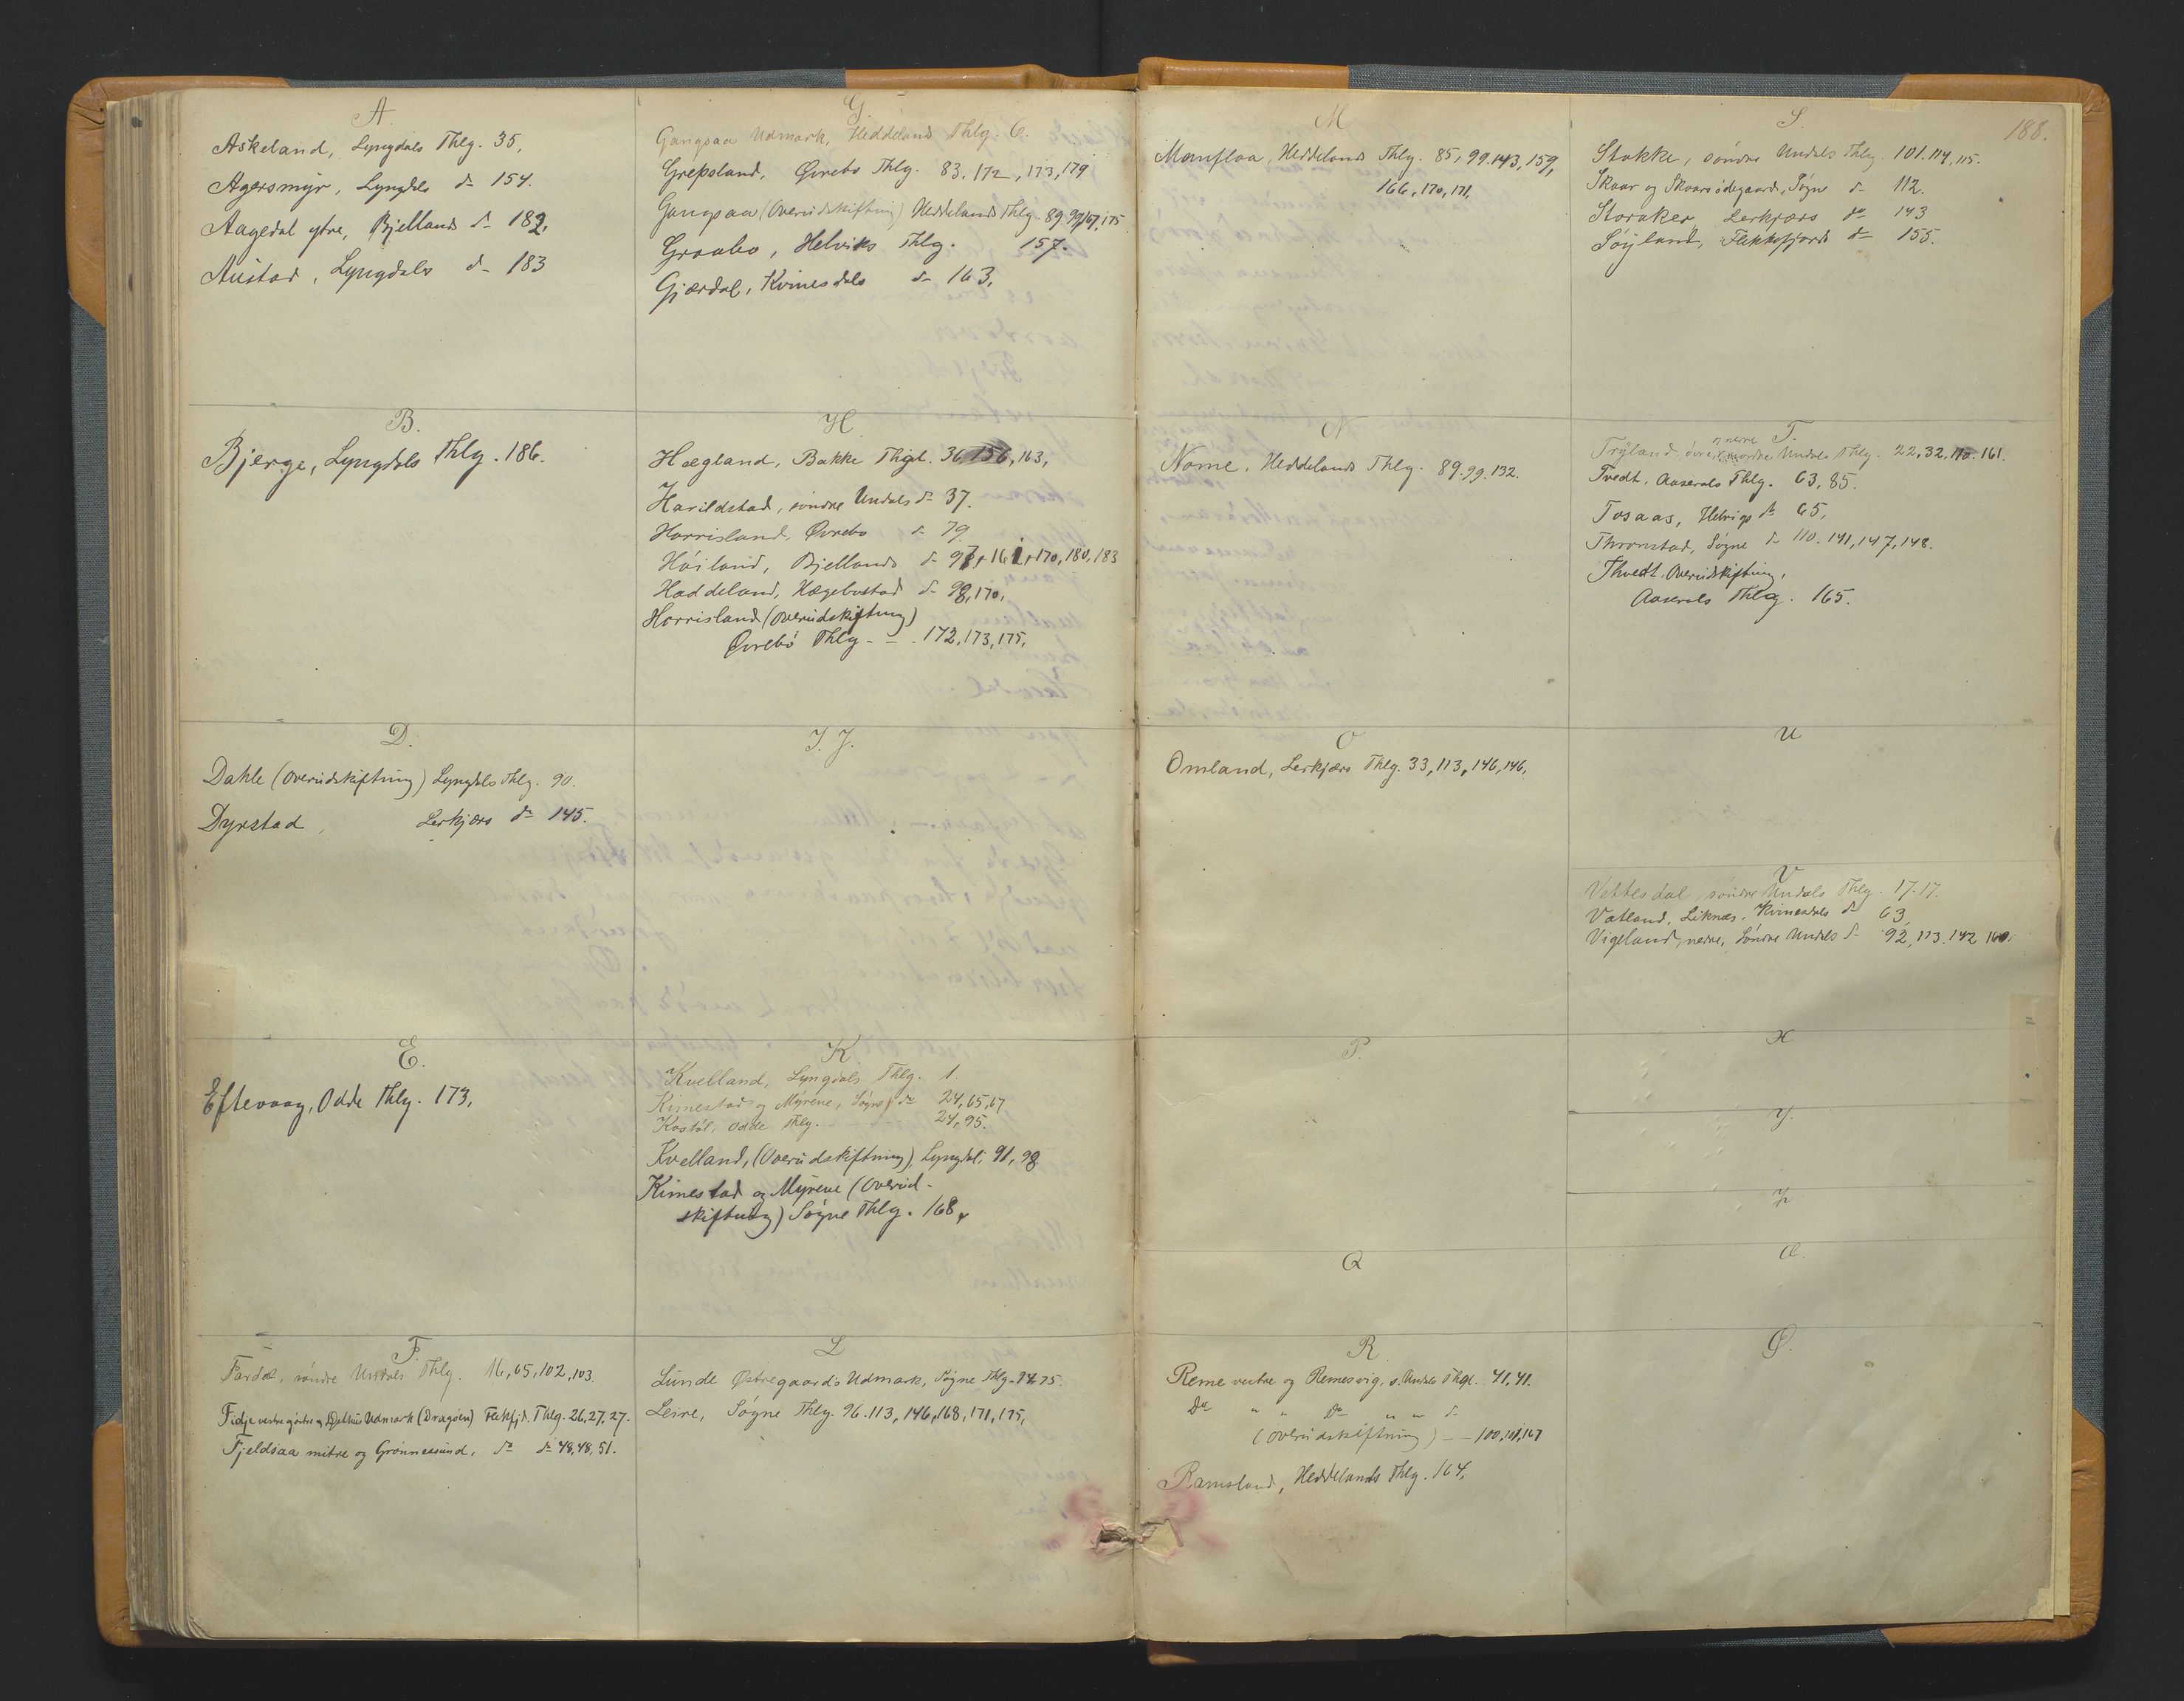 A.
Askeland, Lyngdals Thlg. 35,
Agersmyr, Lyngdals do 154.
Aagedal ytre, Bjellands do 182,
Austad, Lyngdals do 183
B.
Bjerge, Lyngdals Thlg. 186.
D.
Dahle (Overudskiftning) Lyngdals Thlg. 90.
Dyrstad, Lerkjærs do 145.
E.
Eftevaag, Odde Thlg. 173,
F.
Fardal, söndre Undals Thlg. 16,65,102,103.
Fidje vestre gjöstre og Udmark (Dragöen) Flekfj. Thlg. 26,27,27.
Fjeldsaa mitre og Grönnessund, do do 48,48,51.
G.
Gangsaa Udmark, Heddelands Thlg. 6.
Grepsland, Øvrebo Thlg. 83, 172, 173, 179
Gangsaa (Overudskiftning) Heddelands Thlg. 89.99,167,175
Graabo, Helviks Thlg. 157.
Gjærdal, Kvinesdals do 163,
H
Hægland, Bakke Thgl. 36,156,163,
Harildstad, söndre Undals do 37.
Horrisland, Øvrebo do 79.
Höiland, Bjellands do 97,161,170,180,183
Haddeland, Hægebostad do 98,170,
Horrisland (Overudskiftning)
Øvrebö Thlg. - . 172,173,175,
I. J.
K
Kvelland, Lyngdals Thlg. 1.
Kimestad og Myrene, Søgne do 24,65,67
Kostöl, Odde Thlg. 24,95.
Kvelland, (Overudskiftning), Lyngdal, 91,98
Kimestad og Myrene (Overud-
skiftning) Søgne Thlg. 168,
L
Lunde Østregaards Udmark, Søgne Thlg. 74.75.
Leire, Søgne Thlg. 96.113,146,168,171,175,
188.
M
Manflaa, Heddelands Thlg. 85,99.143,159,
166,170,171,
N
Nome, Heddelands Thlg. 89.99.132.
O
Omland, Lerkjærs Thlg. 33,113,146,146,
P.
Q
R
Reme vestre og Remesvig, s. Undals Thgl. 41,41.
Do " " Do " " do
(Overudskiftning) - 100,101,167
Ramsland, Heddelands Thlg. 164,
S.
Stokke, söndre Undals Thlg. 101.114,115.
Skaar og Skaarsödegaard, Søgne do 112.
Storaker, Lerkjærs do 143
Söyland, Flekkefjords do 155.
T.
Tryland, övre, nordre Undals Thlg. 22,32,110.161.
Tvedt, Aaserals Thlg. 63,85.
Tosaas, Helvigs do 65,
Thronstad, Søgne do 110.141,147,148.
Thvedt, Overudskiftning,
Aaserals Thlg. 165.
U
V
Vattesdal, söndre Undals Thlg. 17.17.
Vatland, Liknæs, Kvinesdals do 63,
Vigeland, nedre, Söndre Undals do 92,113.142 160.
X
Y.
Z
Æ.
Ø.